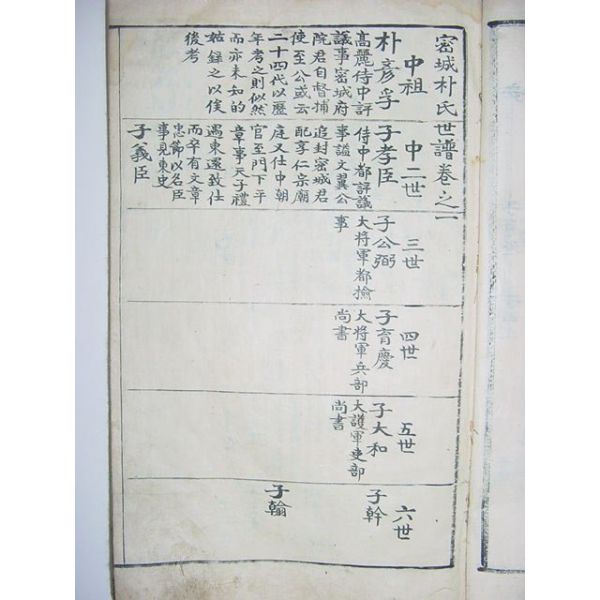 密城朴氏世譜卷之一
中祖
朴彥孚
高麗侍中評
議事密城府
院君自督捕
使至公或云
二十四代以歷
年考之則似然
而亦未知的
姑錄之以俟
後考
中二世
子孝臣
侍中都評議
事謚文翼公
追封密城君
配享仁宗廟
庭又仕中朝
官至門下平
章事天子禮
遇東還致仕
而卒有文章
忠節以名臣
事見東史
子義臣
三世
子公弼
大將軍都撿
事
四世
子育慶
大將軍兵部
尚書
五世
子大和
大護軍吏部
尚書
六世
子幹
子翰